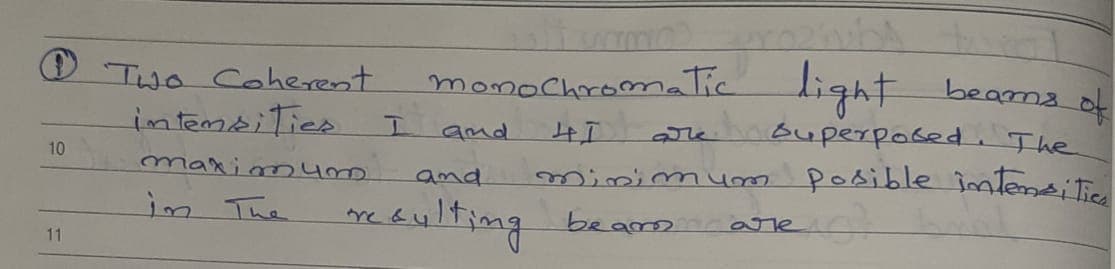 ① Two Coherent monochromatic light beams of
intensities I and 4I are superposed. The
10
maximum and minimum posible intensities
in The resulting beam are
11